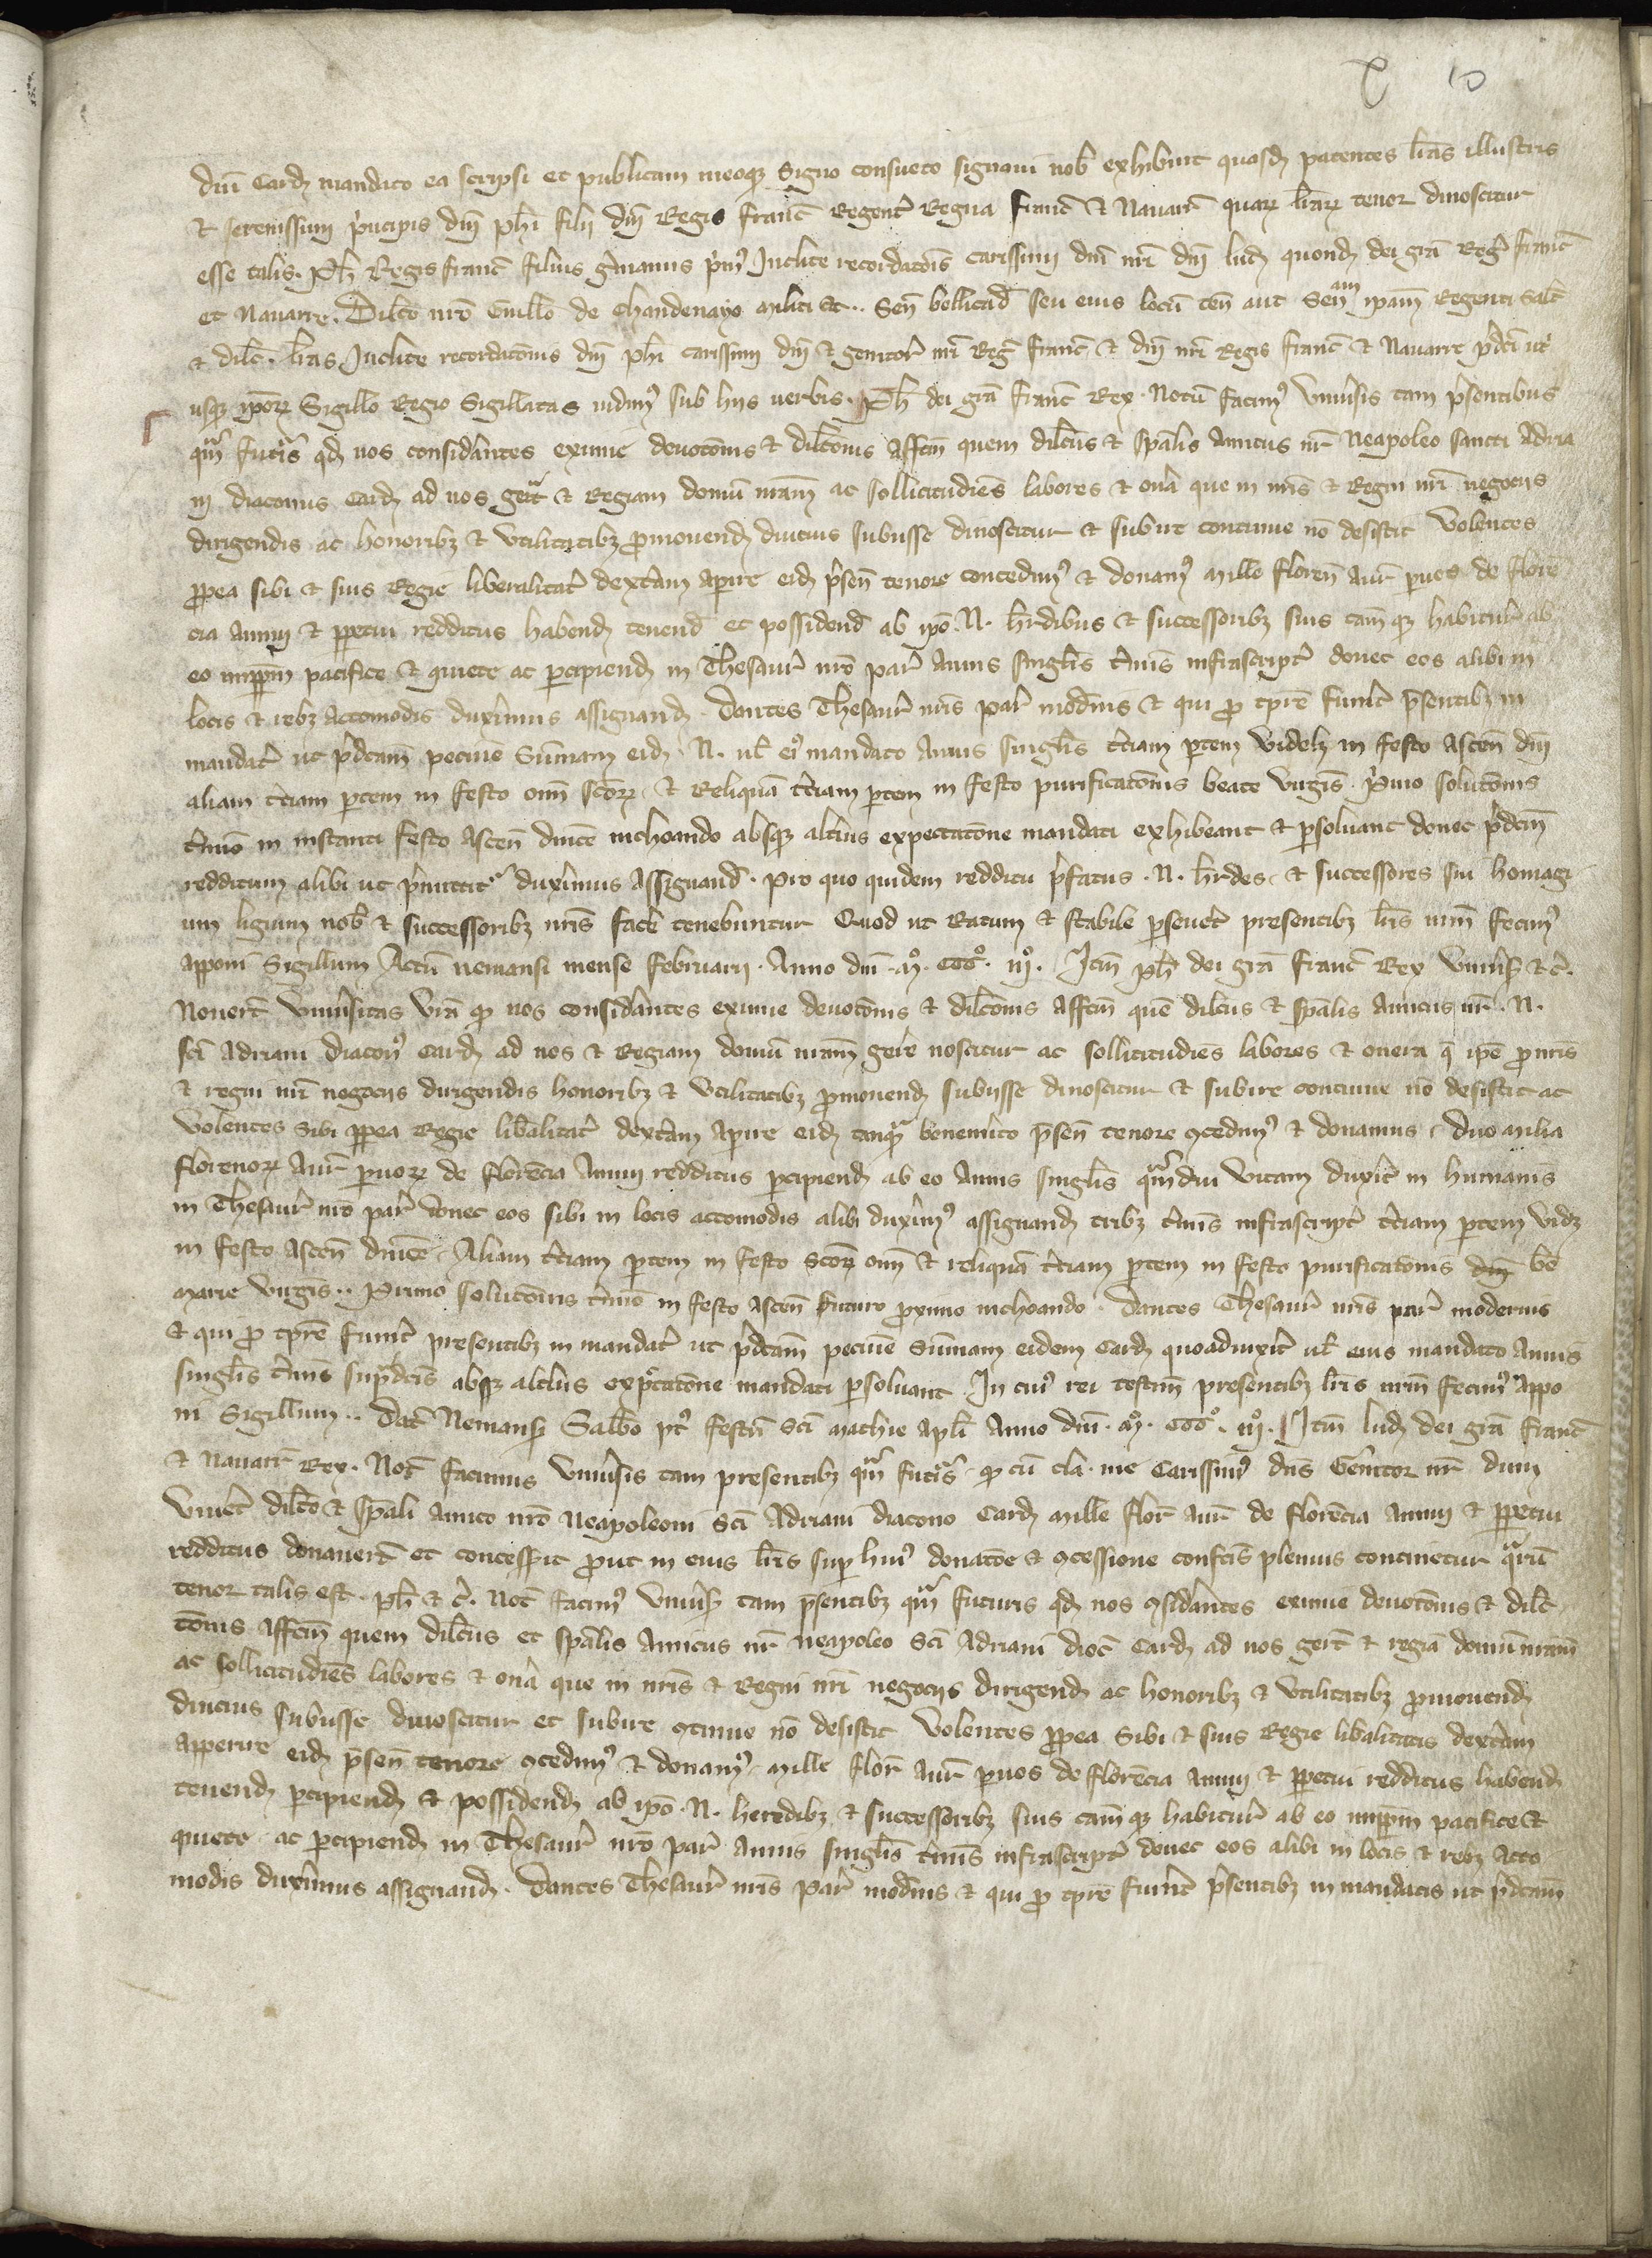 x 10
dni Card mandato ea scripsi et publicam meoqz Signo consueto signaui nob exhibuit quasd patentes lras illustris
et serenissimi pncipis dni phi filij dni Regis franc Regent Regna franc et Nauarr quarz lrarz tenor dinoscitur
esse talis. Ph Regis franc filius gmanus pmus Inclite recordacois carissimi dni nri dni lud quond dei gra Reg franc
et Nauarre. Dilco nro Guillo de Chandenayo militi etc. Sen bellicad seu eius locu ten aut Senam ipam Regenti Salt
et dilc. lras Inclite recordatonis dni phi carissimi dni et genitor nri Reg franc et dni nri Regis franc et Nauarre pdci
usqz iporz Sigillo Regio Sigillatas uidimus sub hijs uerbis. Ph dei gra franc Rex. Notu facimus Vniuersis tam psentibus
qm futis qd nos considantes eximie deuotonis et dilctonis affcm quem dilcus et spalis amicus nr Neapoleo sancti Adria
ni diaconus Card ad nos gerit et Regiam domu nram ac sollicitudies labores et ona que in nris et Regni nri negocijs
dirigendis ac honoribz et vtilitatibz promouend diucius subijsse dinoscitur et subire continue no desistit Volentes
ppea sibi et suis Regie liberalitat dextam apire eid psen tenore concedimus et donamus mille floren aur puos de floren
cia annui et ppetui redditus habend tenend et possidend ab ipo. N. hrdibus et successoribz suis cam qz habitur ab
eo imppm pacifice et quiete ac pcipiend in Thesaur nro par annis singlis tmis infrascript donec eos alibi in
locis et rebz accomodis duximus assignand. Dantes Thesaur nris par modnis et qui p tpre fuint psentibz in
mandat ut pdcam pecunie Summam eid. N. ul eius mandato annis singlis tciam ptem Videlz in festo Ascen dni
aliam tciam ptem in festo omn scorz et Reliqua tciam ptem in festo purificatonis beate virgis. Pmo solutonis
tmio in instanti festo Ascen dnice inchoando absqz altius expectatone mandati exhibeant et psoluant donec pdcm
redditum alibi ut pmittit duximus assignand. Pro quo quidem redditu pfatus. N. hrdes et successores sui homagi
um ligium nob et successoribz nris face tenebuntur Quod ut Ratum et stabile pseuet presentibz lris nrm fecimus
apponi Sigillum Actu nemausi mense februarij. Anno dni mo ccco iijo. Item ph dei gra franc Rex Vniuis etc.
Nouert Vniusitas vra qd nos considantes eximie deuotonis et dilctonis affcm que dilcus et spalis amicus nr. N.
sci adriani diaconus Card ad nos et Regiam domu nram gere noscitur ac sollicitudies labores et onera q ipe p nris
et regni nri negocijs dirigendis honoribz et vtilitatibz promouend subijsse dinoscitur et subire continue no desistit ac
Volentes sibi ppea Regie libalitat dextam apire eid tanq benemito psen tenore ccedimus et donamus duo milia
florenorz aur puorz de florencia annui redditus pcipiend ab eo annis singlis qmdiu vitam duxit in humanis
in Thesaur nro par donec eos sibi in locis accomodis alibi duximus assignand tribz tmis infrascript tciam ptem vidz
in festo Ascen dnice. Aliam tciam ptem in festo scorz omn et reliqua tciam ptem in festo purificatonis dni be
marie virgis. Primo solutonis tmio in festo Ascen futuro proximo inchoando. Dantes Thesaur nris par modernis
et qui p tpre fuint presentibz in mandat ut pdcam pecunie Summam eidem Card quoaduixit ul eius mandato annis
singlis tmis supdcis absqz altius expctatone mandati psoluant In cuius rei testim presentibz lris nrm fecimus appo
ni Sigillum. Dat Nemaus Sabbo pt festu sci mathie apli Anno dni mo ccco iijo. Item lud dei gra franc
et Nauarr Rex. Not facimus Vniuisis tam presentibz qm futis qd cu cla. me Carissimus dns Genitor nr dum
viuet dilco et spali amico nro neapoleoni sci Adriani diacono Card mille flor aur de florencia annui et ppetui
redditus donauerit et concesserit prout in eius lris sup huius donatoe et ccessione confcis plenius continetur quru
tenor talis est. ph etc. Not facimus Vniuis tam psentibz qm futuris qd nos csidantes eximie deuotonis et dilc
tonis affcm quem dilcus et spalis amicus nr neapoleo sci Adriani dioc Card ad nos gerit et regia domu nram
ac sollicitudies labores et ona que in nris et Regni nri negocijs dirigend ac honoribz et vtilitatibz promouend
diucius subijsse dinoscitur et subire ctinue no desistit Volentes ppea sibi et suis Regie libalitatis dextam
apperire eid psen tenore ccedimus et donamus mille flor aur puos de florencia annui et ppetui redditus habend
tenend pcipiend et possidend ab ipo. N. heredibz et successoribz suis cam qz habitur ab eo imppm pacifice et
quiete ac pcipiend in Thesaur nro par annis singlis tmis infrascript donec eos alibi in locis et rebz acco
modis duximus assignand. Dantes Thesaur nris par modnis et qui p tpre fuint psentibz in mandatis ut pdcam